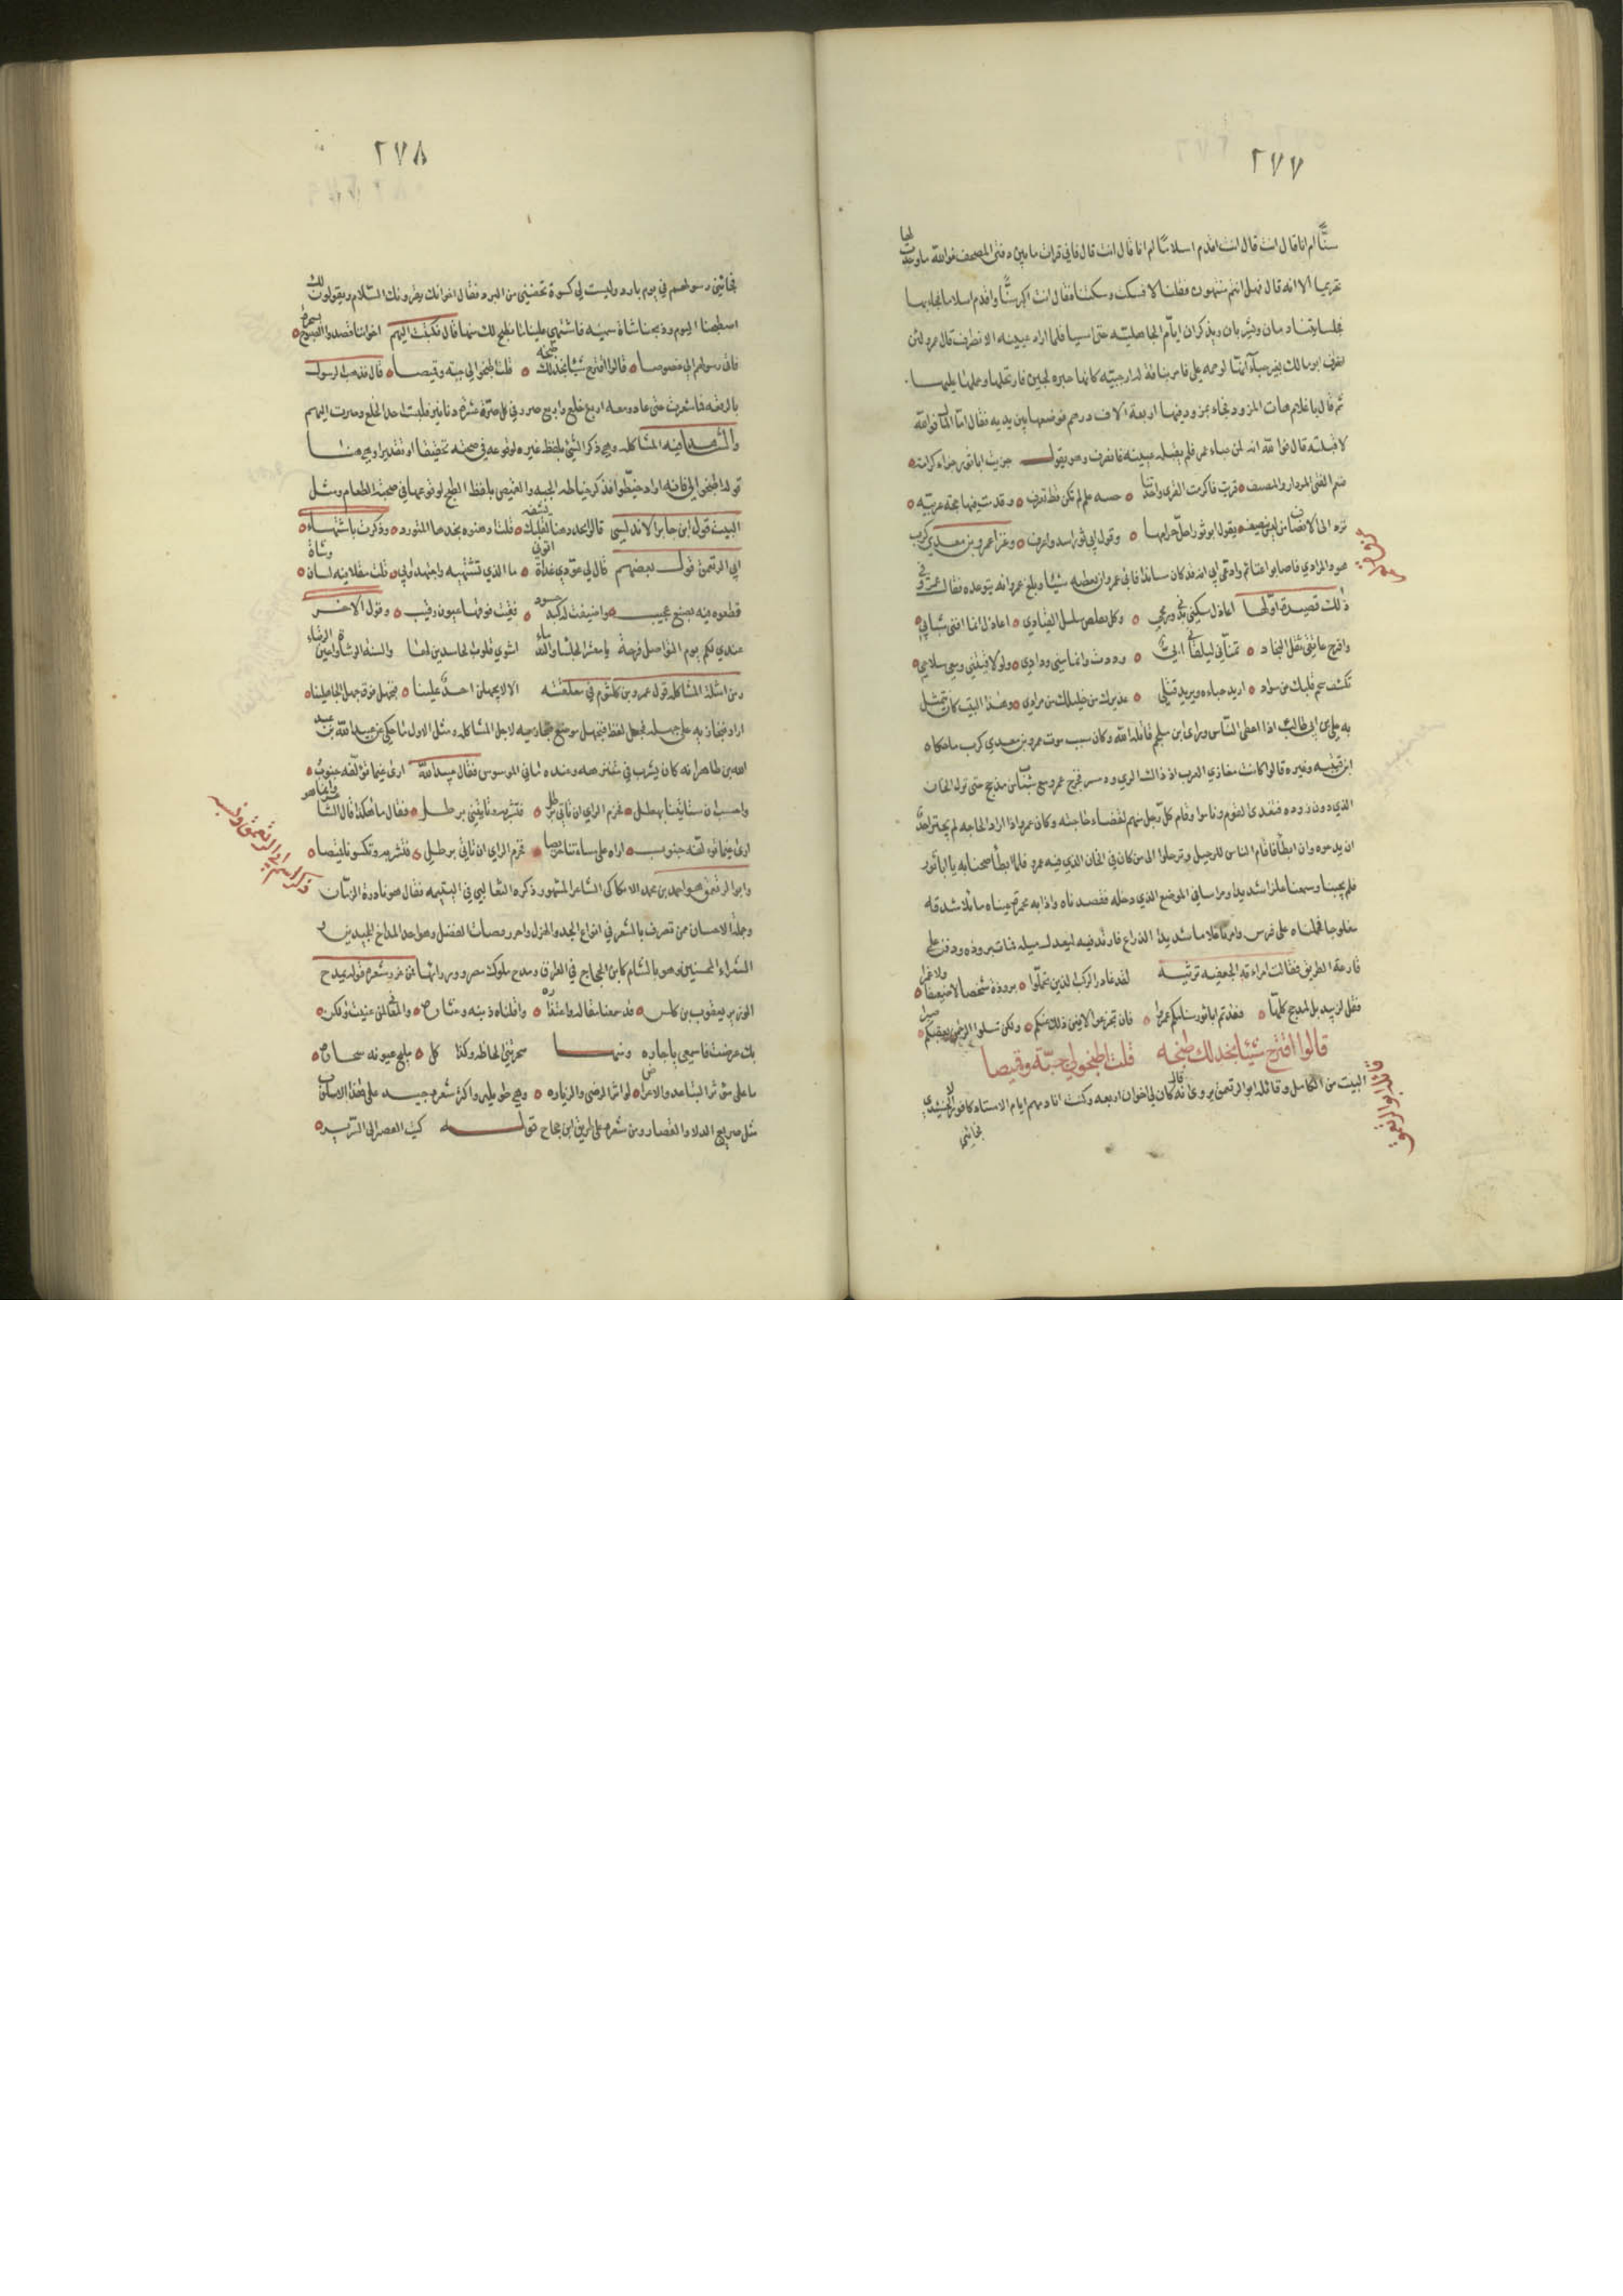 ٢٧٧
سنًّا ام انا قال انت قال انت اقدم اسلامًا ام انا قال انت قال فاني قرات ما بين دفتي المصحف فوالله ما وجدت لها
تحريما الا انه قال فهل انتم منتهون فقلنا لا فسكت وسكتنا فقال انت اكبر سنًّا واقدم اسلاما فجاء بها
فجلسا يتنادمان ويشربان ويذكران ايام الجاهلية حتى امسيا فلما اراد عيينه الانصراف قال عمرو لئن
انصرف ابو مالك بغير حباء انها لوصمه علي فامر بناقة له ارحبية كانها جبيرة لجين فارتحلها وحمله عليها
ثم قال يا غلام هات المزود فجاء بمزود فيها اربعة الاف درهم فوضعها بين يديه فقال اما المال فوالله
لا قبلته قال فوالله انه لمن حباء عمر فلم يقبله عيينه فانصرف وهو يقول جزيت ابا ثور جزاء كرامة
فنعم الفتى المزدار والمضيف قريت فاكرمت القرى وافدتنا علم لم تكن قط تعرف
يقول ابو ثور احل حرامها وقول ابي ثور اسد واعرف وغزا عمرو بن معدي كرب
هو وابي المرادي فاصابوا غنائم وادعى ابي انه قد كان ساندا فابى عمرو ان يعطيه شيئا وبلغ عمرو انه يتوعده فقال عمرو في
ذلك قصيدة اولها اعاذل شكتي بدني ورمحي وكل مقلص سلس القياد اعاذل انما افنى شبابي
واقرح عاتقي ثقل النجاد تمناني ليلقاني ابي وددت واينما مني ودادي ولو لاقيتني ومعي سلاحي
تكشف شحم قلبك عن سواد اريد حباءه ويريد قتلي عذيرك من خليلك من مراد وهذا البيت كان يتمثل
به علي بن ابي طالب اذا اعطى الناس وراى ابن ملجم قاتله الله وكان سبب موت عمرو بن معدي كرب ما حكاه
ابن قتيبه وغيره قالوا كانت مغازي العرب اذ ذاك الري ودستبى فخرج عمرو مع شباب من مذحج حتى نزل الخان
الذي دون روده فتغدى القوم وناموا وقام كل رجل منهم لقضاء حاجته وكان عمرو اذا اراد الحاجه لم يجترئ احد
ان يدعوه وان ابطأ فقام الناس للرحيل وترحلوا الا من كان في الخان الذي فيه عمرو فلما ابطأ صحنا به يا ابا ثور
فلم يجبنا وسمعنا علزا شديدا ومراسا في الموضع الذي دخله فقصدناه واذا به محمرة عيناه مائلا شدقه
مفلوجا فحملناه على فرس وامرنا غلاما شديد الذراع فارتدفه ليعدل ميله فمات بروذه ودفن على
قارعة الطريق فقالت امراته الجعفيه ترثيه لقد غادر الركب الذين تحملوا بروذة شخصا لا ضعيفا ولا غمرا
فقل لزبيد بل لمذحج كلها فقدتم ابا ثور سنانكم عمرا فان تجزعوا لا يغن ذلك عنكم ولكن سلوا الرحمن يعقبكم صبرا
قالوا اقترح شيئا نجد لك طبخه قلت اطبخوا لي جبّة وقميصا
البيت من الكامل وقائله ابو الرقعمق يروى انه قال كان لي اخوان اربعه وكنت انادمهم ايام الاستاذ كافور الاخشيدي
فجائني
قائله ابو الرقعمق
٢٧٨
فجائني رسولهم في يوم بارد وليست لي كسوة تحصنني من البرد فقال اخوانك يقرونك السلام ويقولون لك
اصطبحنا اليوم وذبحنا شاة سمينه فاشتهي علينا ما نطبخ لك منها قال فكتبت اليهم اخواننا قصدوا الصبوح بسحرة
فاتى رسولهم الي خصوصا قالوا اقترح شيئا نجد لك طبخه قلت اطبخوا لي جبة وقميصا قال فذهب الرسول
بالرقعه فما شعرت حتى عاد ومعه اربع خلع واربع صرر في كل صرة عشرة دنانير فلبست احدى الخلع وصرت اليهم
والشاهد فيه المشاكله وهي ذكر الشئ بلفظ غيره لوقوعه في صحبته تحقيقا او تقديرا وهي هنا
قوله اطبخوا لي فانه اراد خيطوا فذكر خياطه الجبه والقميص بلفظ الطبخ لوقوعها في صحبة الطعام ومثل
البيت قول ابن جابر الاندلسي قالوا اتخذ دهنا لقلبك يشفه قلت ادهنوه بخدها المتورد وذكرت باشتهاء
ابي الرقعمق قول بعضهم قال لي عودي غداة اتوني ما الذي تشتهيه واجتهدوا بي قلت مغلا فيه لسان وشاة
قطعوه فيه بصنع عجيب واضيفت له كبد حسود فقئت فوقها عيون رقيب وقول الاخر
عندي لكم يوم التواصل فرحة يا معشر الجلساء والندماء اشوي قلوب الحاسدين بها والسنة الوشاة واعين الرقباء
ومن امثلة المشاكله قول عمرو بن كلثوم في معلقته الا لا يجهلن احد علينا فنجهل فوق جهل الجاهلينا
اراد فنجازيه على جهله فجعل لفظ فنجهل موضع فنجازيه لاجل المشاكله ومثل الاول ما حكي عن عبيد الله بن عبد
الله بن طاهر انه كان يشرب في متنزهه وعنده ماني الموسوس فقال عبيد الله ارى غيما تؤلفه جنوب
واحسب ان ستاتينا بهطل فحزم الراي ان تاتي برطل فتشربه وتاتيني برطل فقال ما هكذا قال الشاعر وانما هو
ارى غيما تؤلفه جنوب اراه على مساءتنا حريصا فحزم الراي ان تاتي برطل فتشربه وتكسوني قميصا
وابو الرقعمق هو احمد بن محمد الانطاكي الشاعر المشهور ذكره الثعالبي في اليتيمه فقال هو نادرة الزمان
وجملة الاحسان ممن تصرف بالشعر في انواع الجد والهزل واحرز قصبات الفضل وهو احد المداح المجيدين
الشعراء المحسنين وهو بالشام كابن الحجاج في العراق ومدح ملوك مصر ووزرائها فمن غرر شعره قوله يمدح
الوزير يعقوب بن كلس قد سمعنا مقاله واعتذاره واقلناه ذنبه وعثاره والمعاني لمن عنيت ولكن
بك عرضت فاسمعي يا جاره ومنها سحرتني الحاظه وكذا كل مليح عيونه سحاره
ما على مؤثر التباعد والاعراض لو اثر الرضى والزياره وهي طويله واكثر شعره جيد على هذا الاسلوب
مثل صريع الدلاء والقصار ومن شعره على طريق ابن حجاج قوله كتب الحصير الى السرير